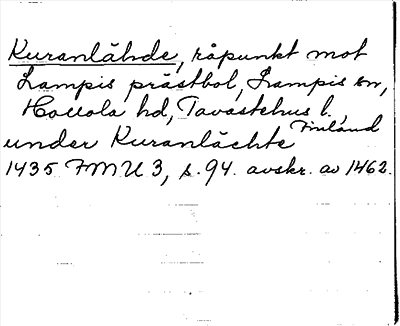 Kuranlähde, råpunkt mot
Lampis prästbol, Lampis sn,
Hollola hd, Tavastehus l.
Finland
under Kuranlächte
1435 FMU 3, s. 94. avskr. av 1462.